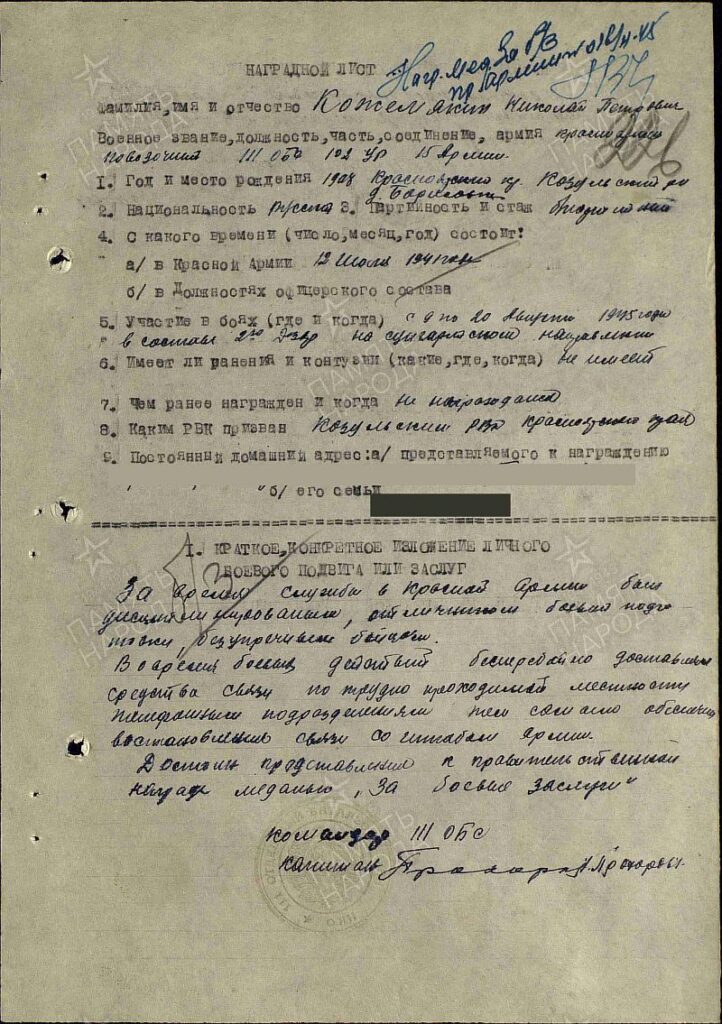 Наг. мед. За Б/З
НАГРАДНОЙ ЛИСТ
Фамилия,имя и отчество Кожемякин Николай Петрович
Военное звание,должность,часть,соединение, армия красноармеец
Повозочный III ОБС 102 УР 15 Армии.
1. Год и место рождения 1908 Красноярский кр. Козульский р-н
2. Национальность русский 3. Партийность и стаж
4. С какого времени (число,месяц,год) состоит:
а/ в Красной Армии 12 Июля 1941 года
б/ в Должностях офицерского состава
5. Участие в боях (где и когда) с 9 по 20 Августа 1945 года
в составе 2го на сунгарийском направлении
6. Имеет ли ранения и контузии (какие,где,когда) не имеет
7. Чем ранее награжден и когда не награждался
8. Каким РВК призван Козульским РВК Красноярского края
9. Постоянный домашний адрес:а/ представляемого к награждению
б/ его семьи
I. КРАТКОЕ,КОНКРЕТНОЕ ИЗЛОЖЕНИЕ ЛИЧНОГО
БОЕВОГО ПОДВИГА ИЛИ ЗАСЛУГ
За время службы в Красной Армии был
дисциплинированным, отличником боевой подго
товки, безупречным бойцом.
Во время боевых действий бесперебойно доставлял
средства связи по трудно проходимой местности
подразделениям тем самым обеспечил
восстановление связи со штабом Армии.
Достоин представления к правительственной
награде медалью „За боевые заслуги"
Командир III ОБС
капитан Прохоров